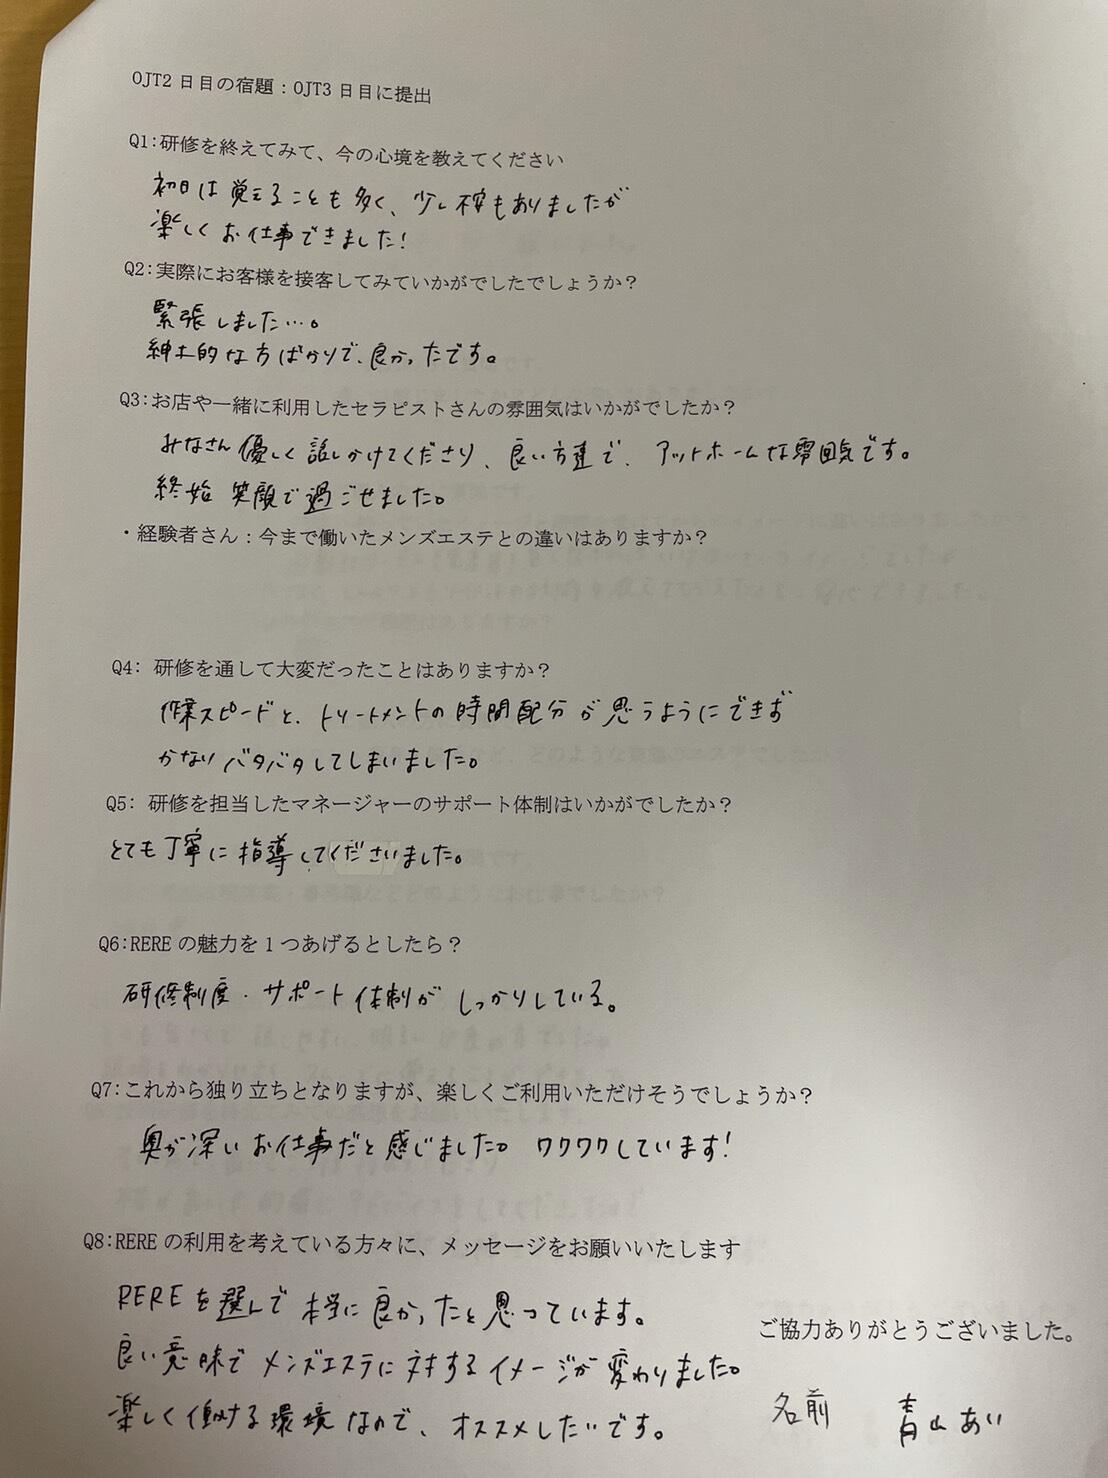 OJT2 日目の宿題：OJT3 日目に提出
Q1:研修を終えてみて、今の心境を教えてください
初日は覚えることも多く、少し不安もありましたが
楽しくお仕事できました！
Q2:実際にお客様を接客してみていかがでしたでしょうか？
緊張しました…。
紳士的な方ばかりで、良かったです。
Q3:お店や一緒に利用したセラピストさんの雰囲気はいかがでしたか？
みなさん優しく話しかけてくださり、良い方達で、アットホームな雰囲気です。
終始笑顔で過ごせました。
・経験者さん：今まで働いたメンズエステとの違いはありますか？
Q4: 研修を通して大変だったことはありますか？
作業スピードと、トリートメントの時間配分が思うようにできず
かなりバタバタしてしまいました。
Q5: 研修を担当したマネージャーのサポート体制はいかがでしたか？
とても丁寧に指導してくださいました。
Q6:RERE の魅力を 1 つあげるとしたら？
研修制度・サポート体制がしっかりしている。
Q7:これから独り立ちとなりますが、楽しくご利用いただけそうでしょうか？
奥が深いお仕事だと感じました。ワクワクしています！
Q8:RERE の利用を考えている方々に、メッセージをお願いいたします
REREを選んで本当に良かったと思っています。
良い意味でメンズエステに対するイメージが変わりました。
楽しく働ける環境なので、オススメしたいです。
ご協力ありがとうございました。
名前 青山あい